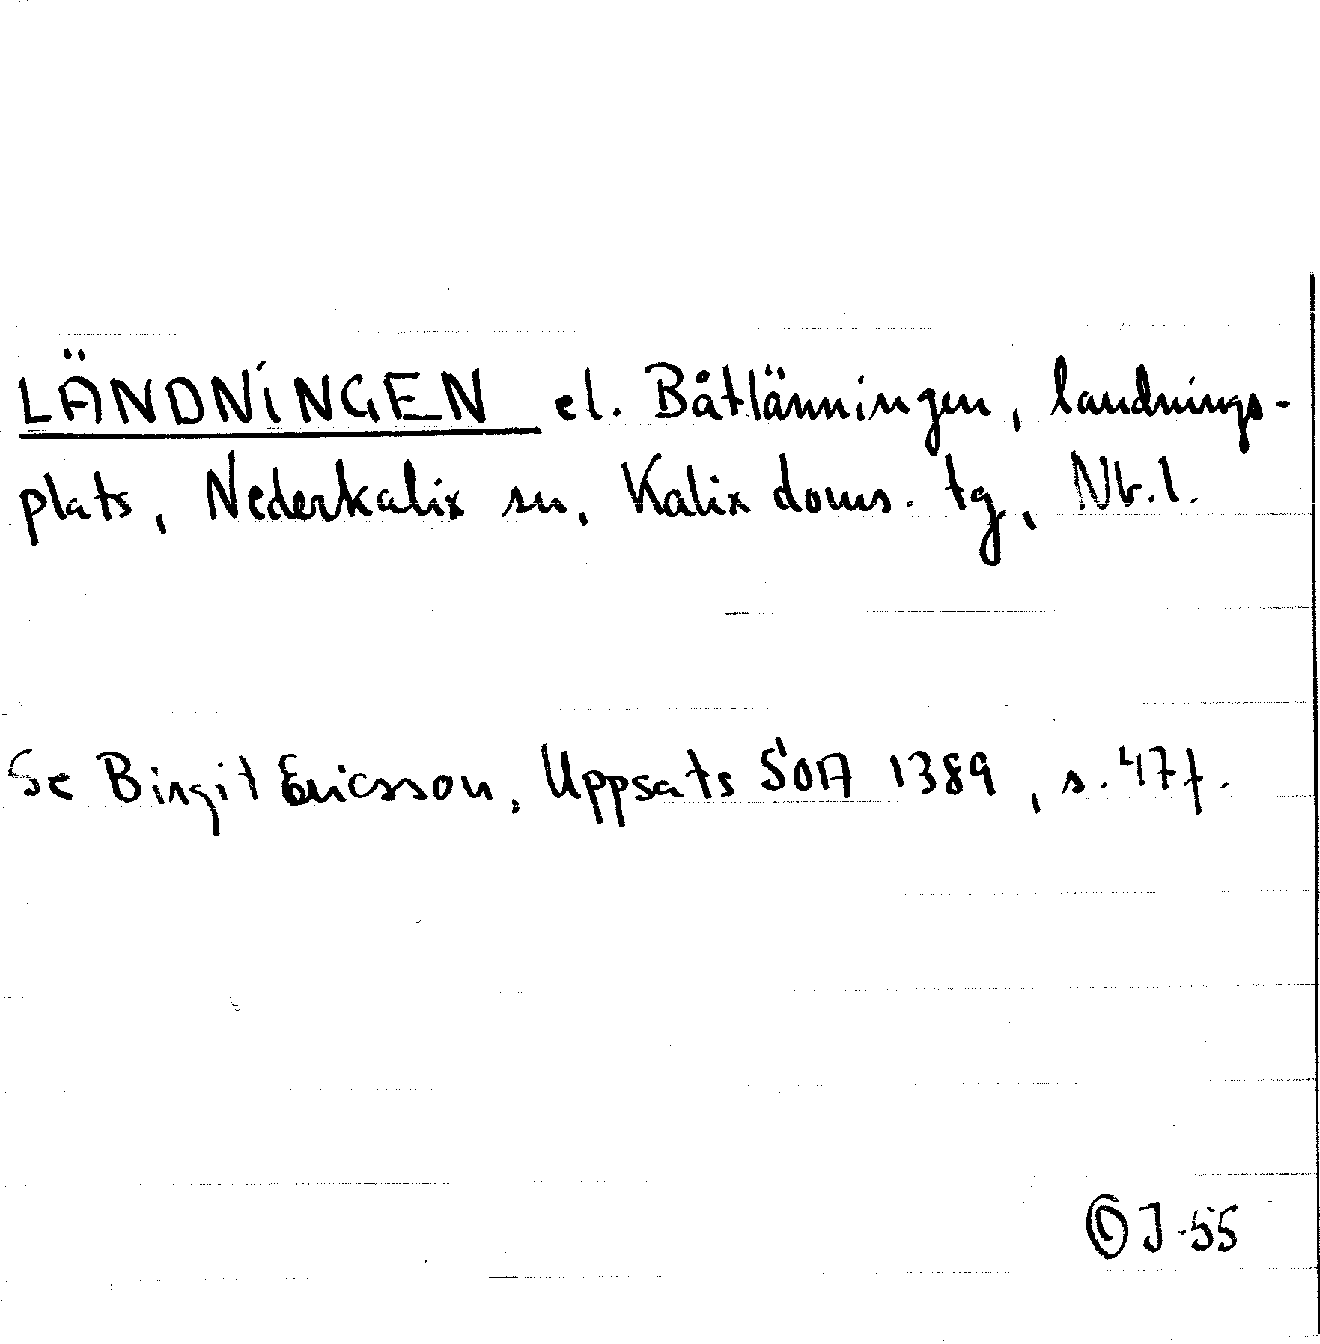 LÄNDNINGEN el. Båtlänningen, landnings-
plats, Nederkalix sn, Kalix doms. tg, Nb.l.
Se Birgit Ericsson, Uppsats SOA 1389, s. 47 f.
J-55